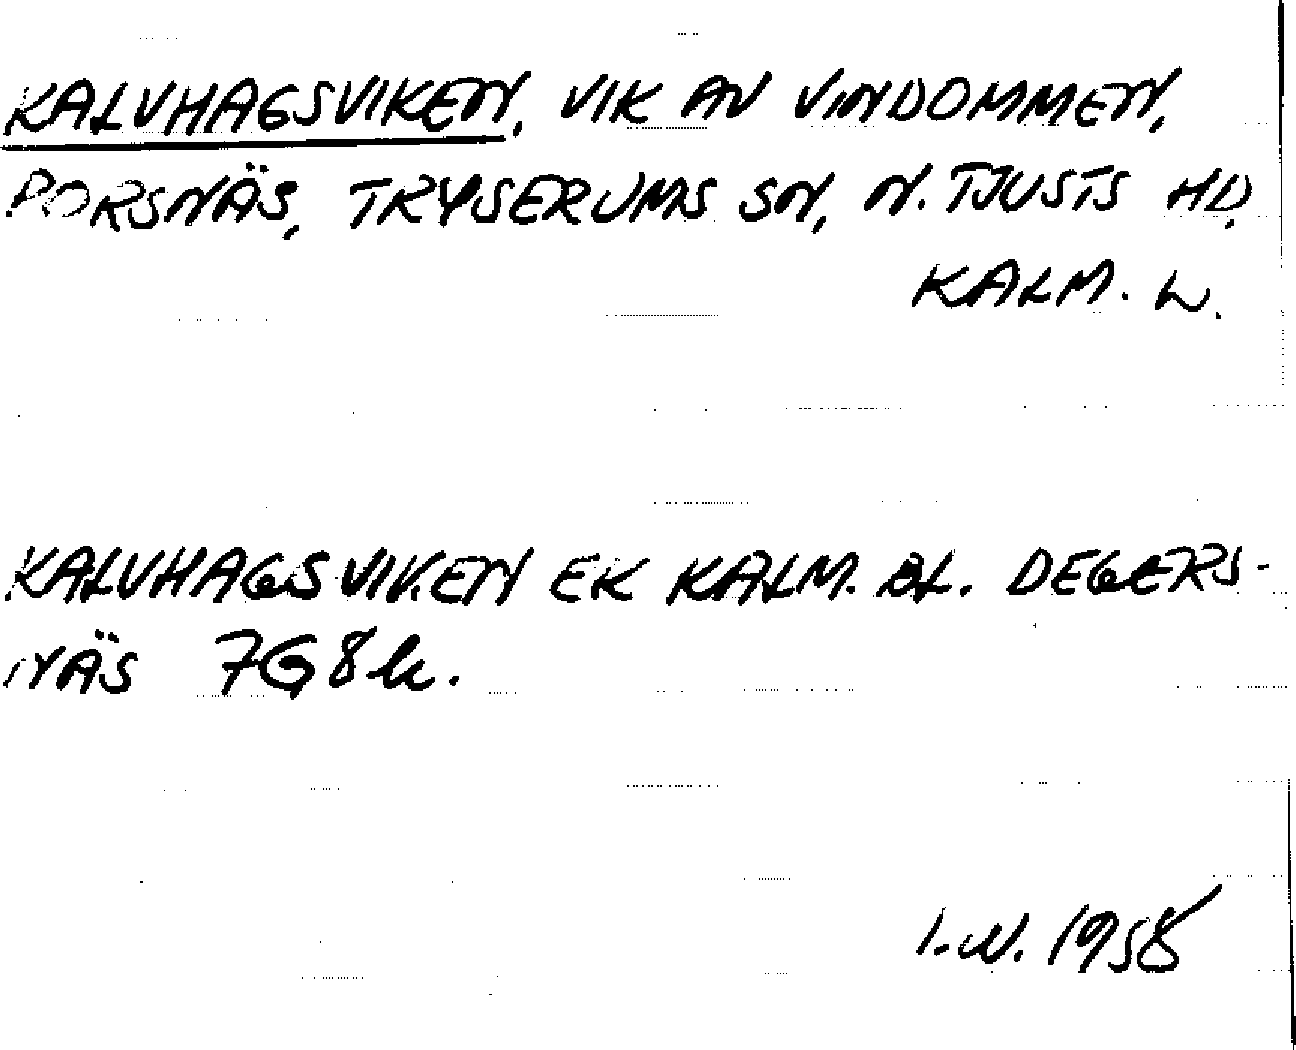 KALVHAGSVIKEN, VIK AV VINDOMMEN,
PORSNÄS, TRYSERUMS SN, N. TJUSTS HD,
KALM. L.
KALVHAGSVIKEN EK KALM. BL. DEGERS-
NÄS 7G8h.
I.N. 1958